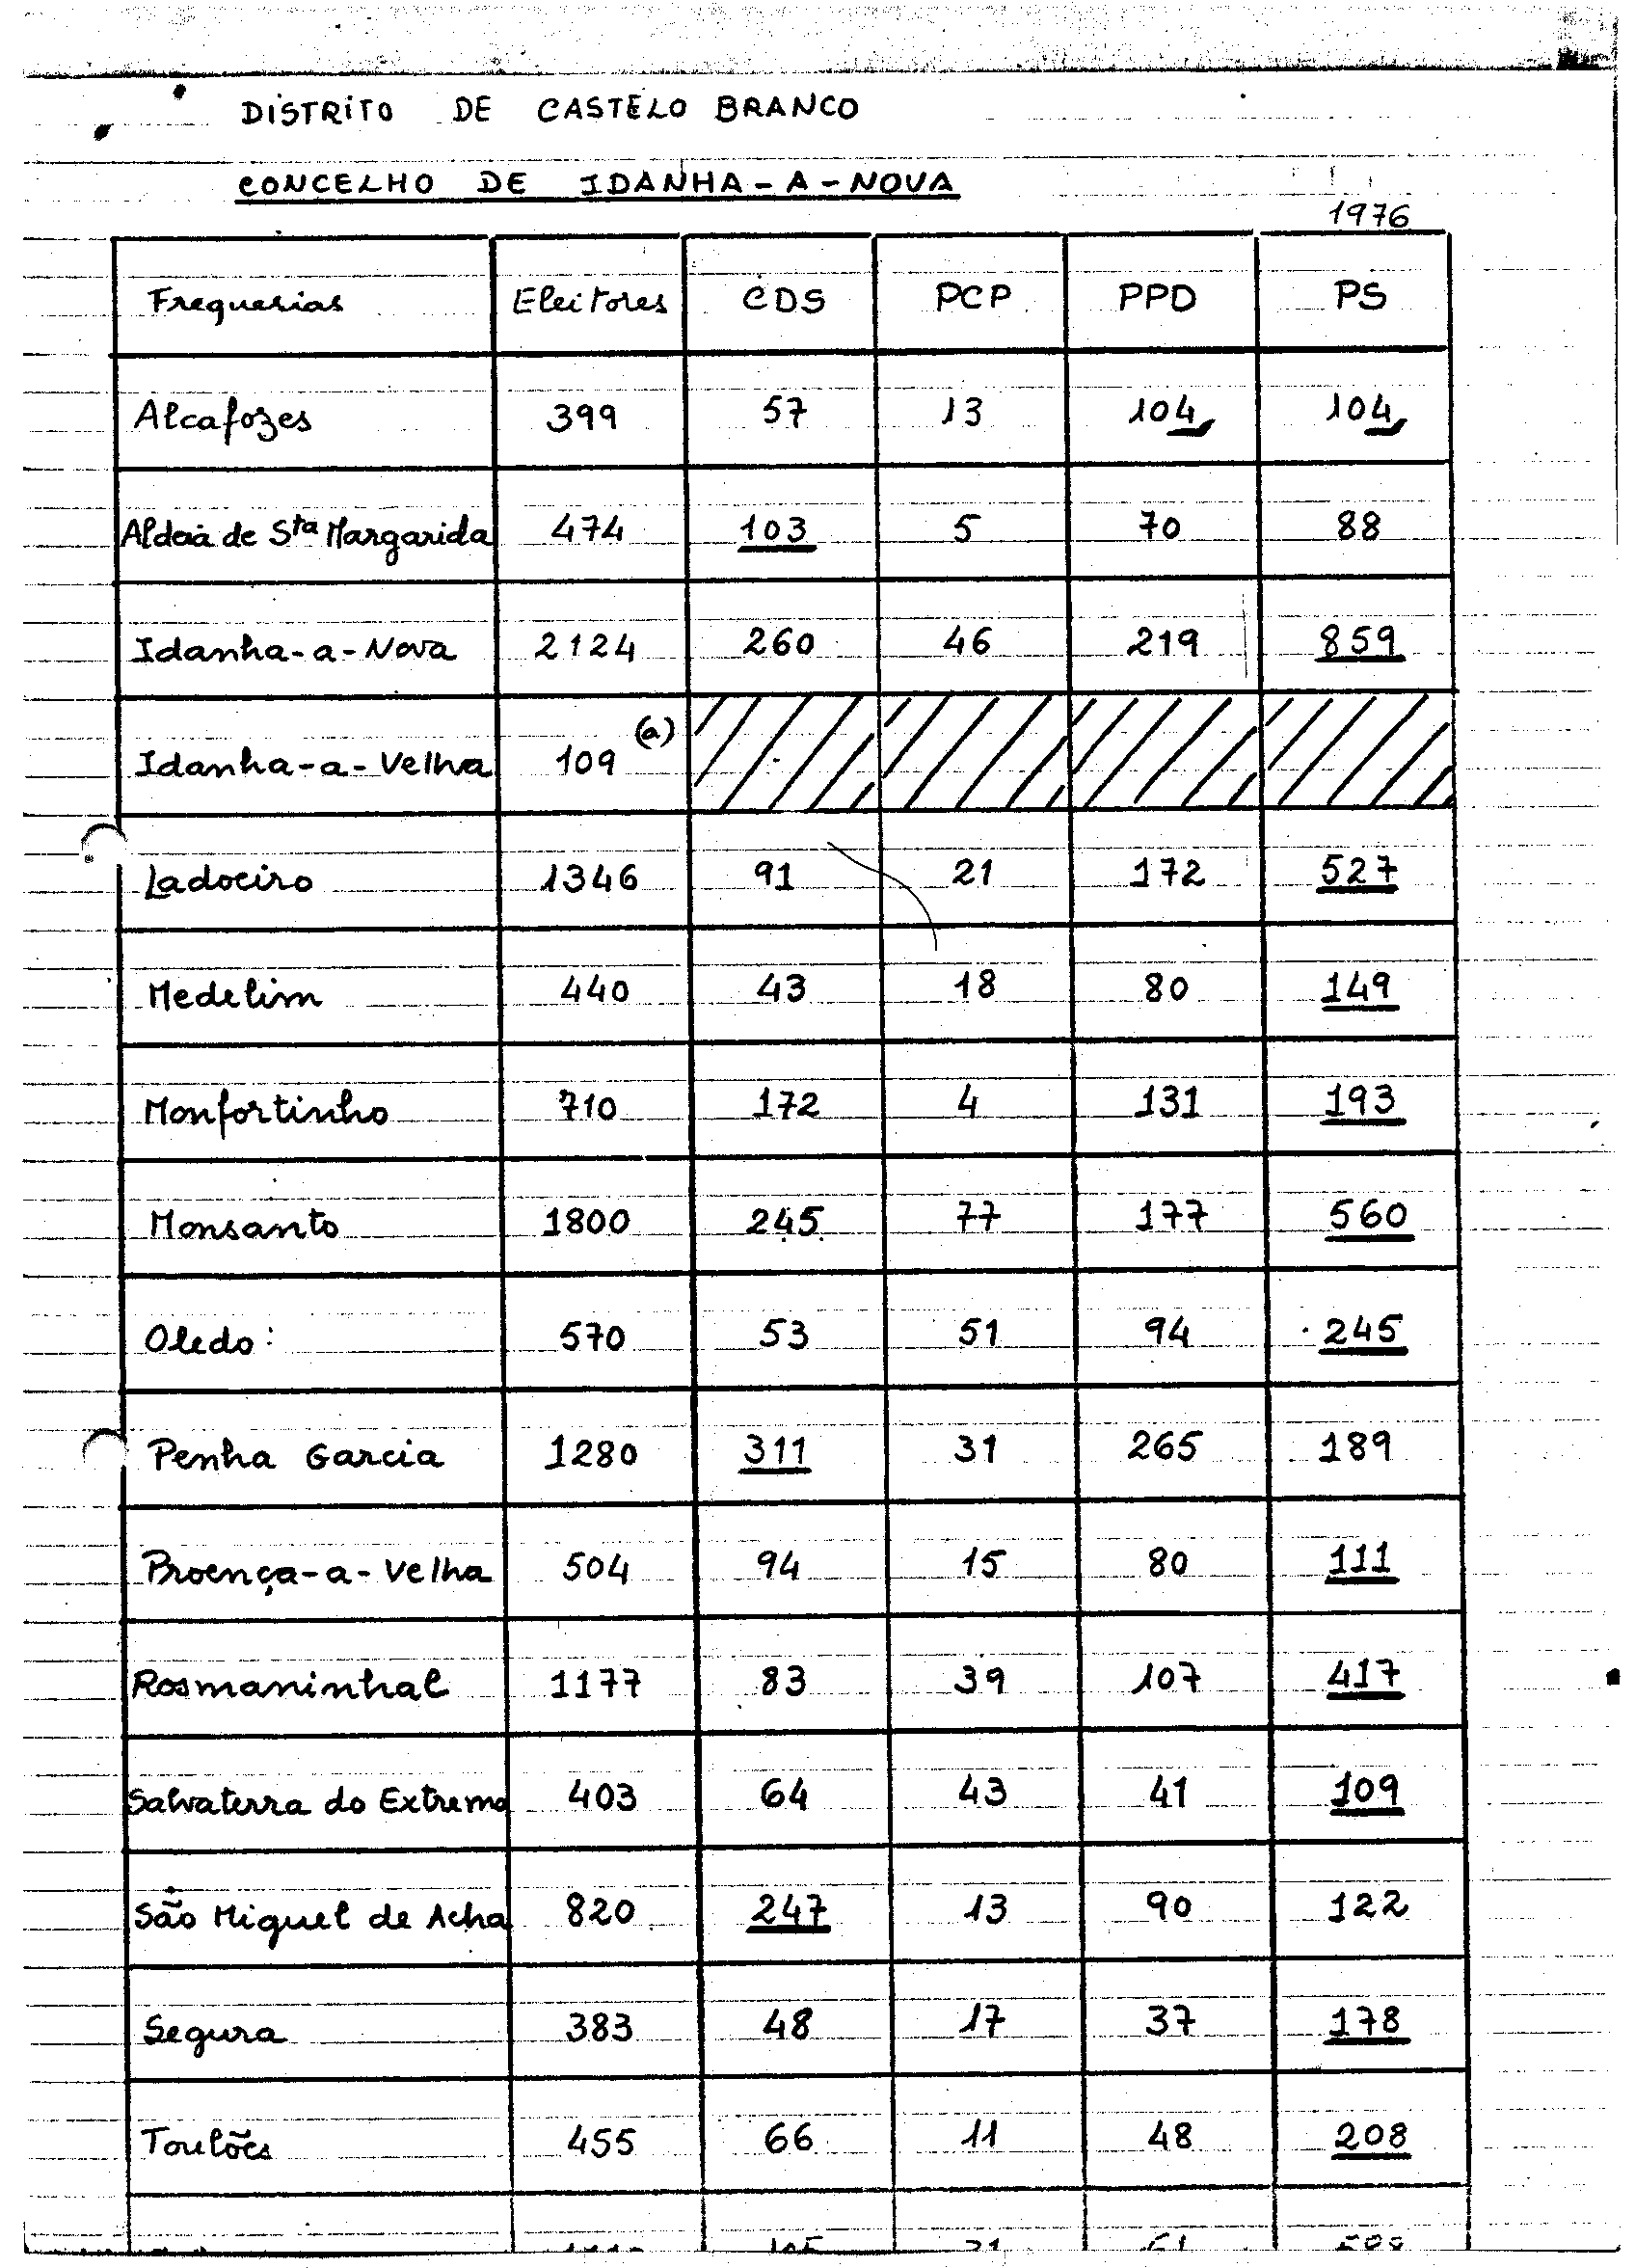 DISTRITO DE CASTELO BRANCO
CONCELHO DE IDANHA-A-NOVA
1976
Freguesias Eleitores CDS PCP PPD PS
Alcafozes 399 57 13 104 104
Aldeia de Sta Margarida 474 103 5 70 88
Idanha-a-Nova 2124 260 46 219 859
Idanha-a-Velha 109 (a)
Ladoeiro 1346 91 21 172 527
Medelim 440 43 18 80 149
Monfortinho 710 172 4 131 193
Monsanto 1800 245 77 177 560
Oledo: 570 53 51 94 245
Penha Garcia 1280 311 31 265 189
Proença-a-Velha 504 94 15 80 111
Rosmaninhal 1177 83 39 107 417
Salvaterra do Extremo 403 64 43 41 109
São Miguel de Acha 820 247 13 90 122
Segura 383 48 17 37 178
Toulões 455 66 11 48 208